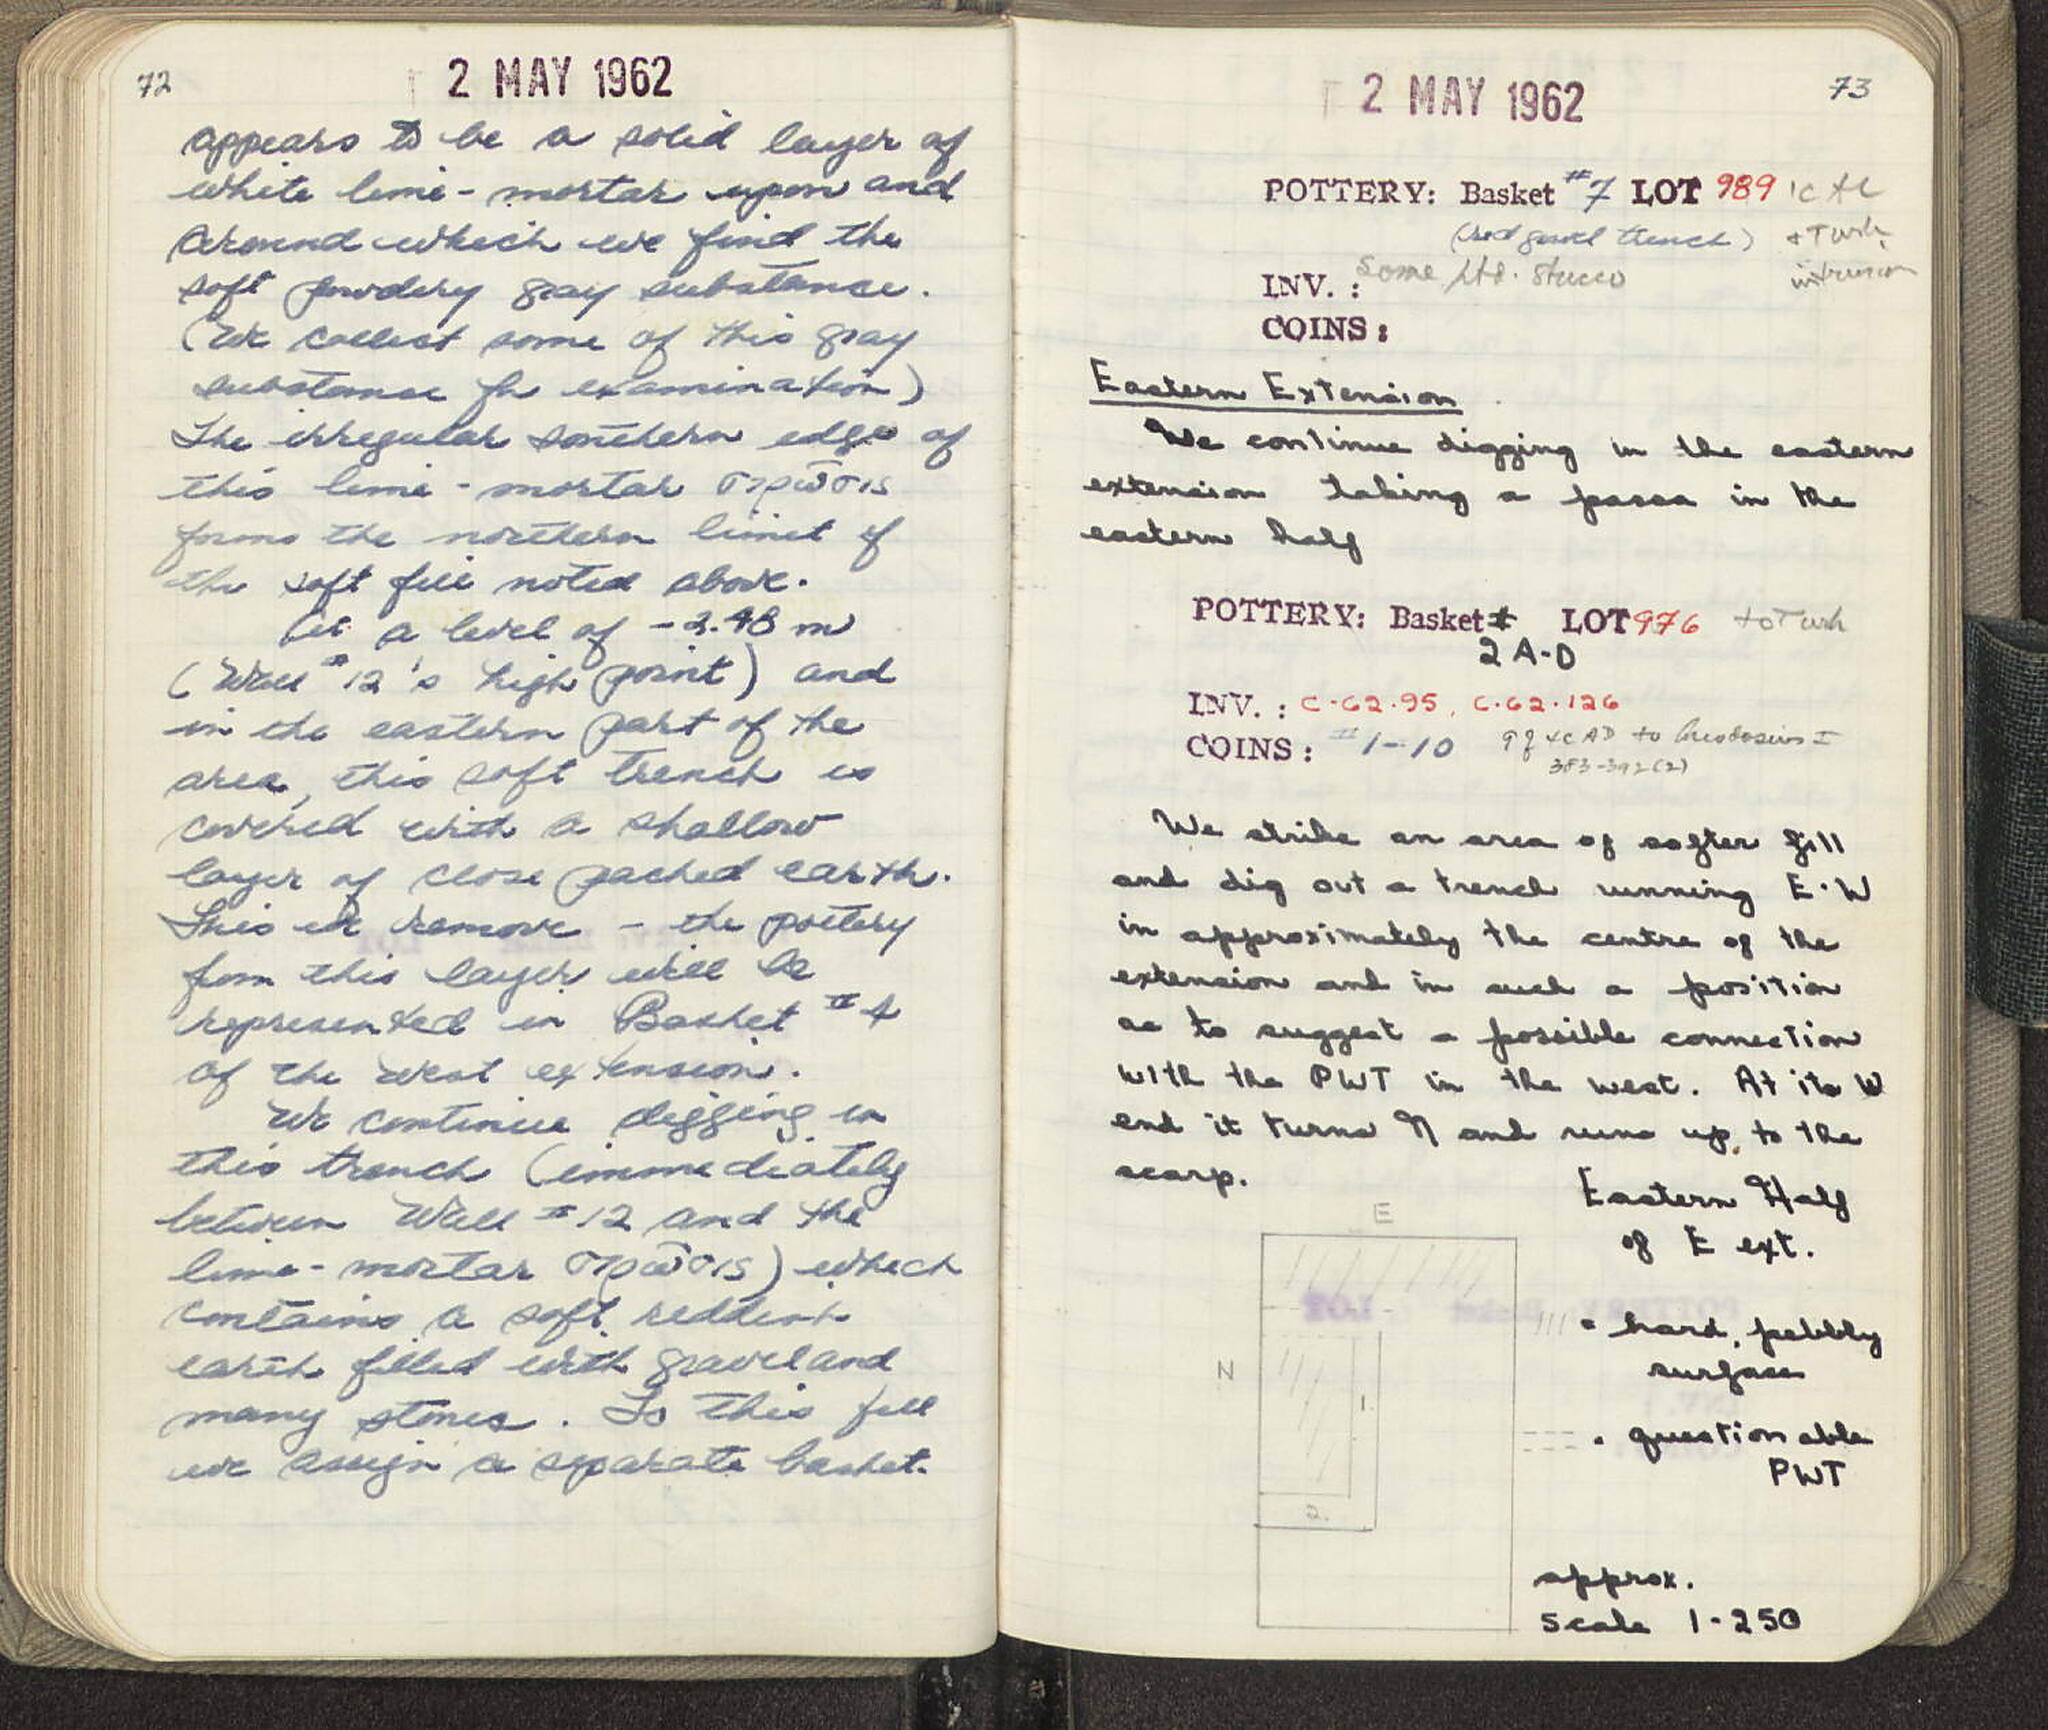 72
2 MAY 1962
appears to be a solid layer of
white lime-mortar upon and
around which we find the
soft powdery gray substance.
(We collect some of this gray
substance for examination)
The irregular southern edge of
this lime-mortar στρῶσις
forms the northern limit of
the soft fill noted above.
At a level of -2.48 m
(Wall #12's high point) and
in the eastern part of the
area, this soft trench is
covered with a shallow
layer of close packed earth.
This we remove - the pottery
from this layer will be
represented in Basket #4
of the west extension.
We continue digging in
this trench (immediately
between Wall #12 and the
lime-mortar στρῶσις) which
contains a soft reddish
earth filled with gravel and
many stones. To this fill
we assign a separate basket.
2 MAY 1962
73
POTTERY: Basket #7 LOT 989 1c AC
(red gravel trench) + Turk.
intrusion
INV.: Some ptd. stucco
COINS:
Eastern Extension
We continue digging in the eastern
extension taking a passa in the
eastern half
POTTERY: Basket # LOT 976 to Turk
2 A-D
INV.: C-62-95, C-62-126
COINS: #1-10 9 of 4c AD to Theodosius I
383-392 (2)
We strike an area of softer fill
and dig out a trench running E-W
in approximately the centre of the
extension and in such a position
as to suggest a possible connection
with the PWT in the west. At its W
end it turns N and runs up to the
scarp.
Eastern Half
of E ext.
E
N
1.
2.
/// = hard, pebbly
surface
= questionable
PWT
approx.
scale 1-250